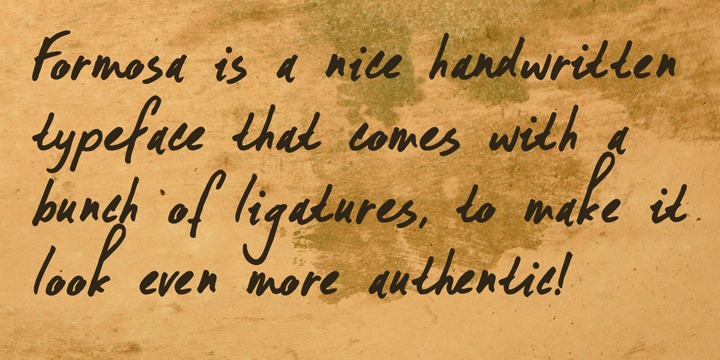 Formosa is a nice handwritten
typeface that comes with a
bunch of ligatures, to make it
look even more authentic!